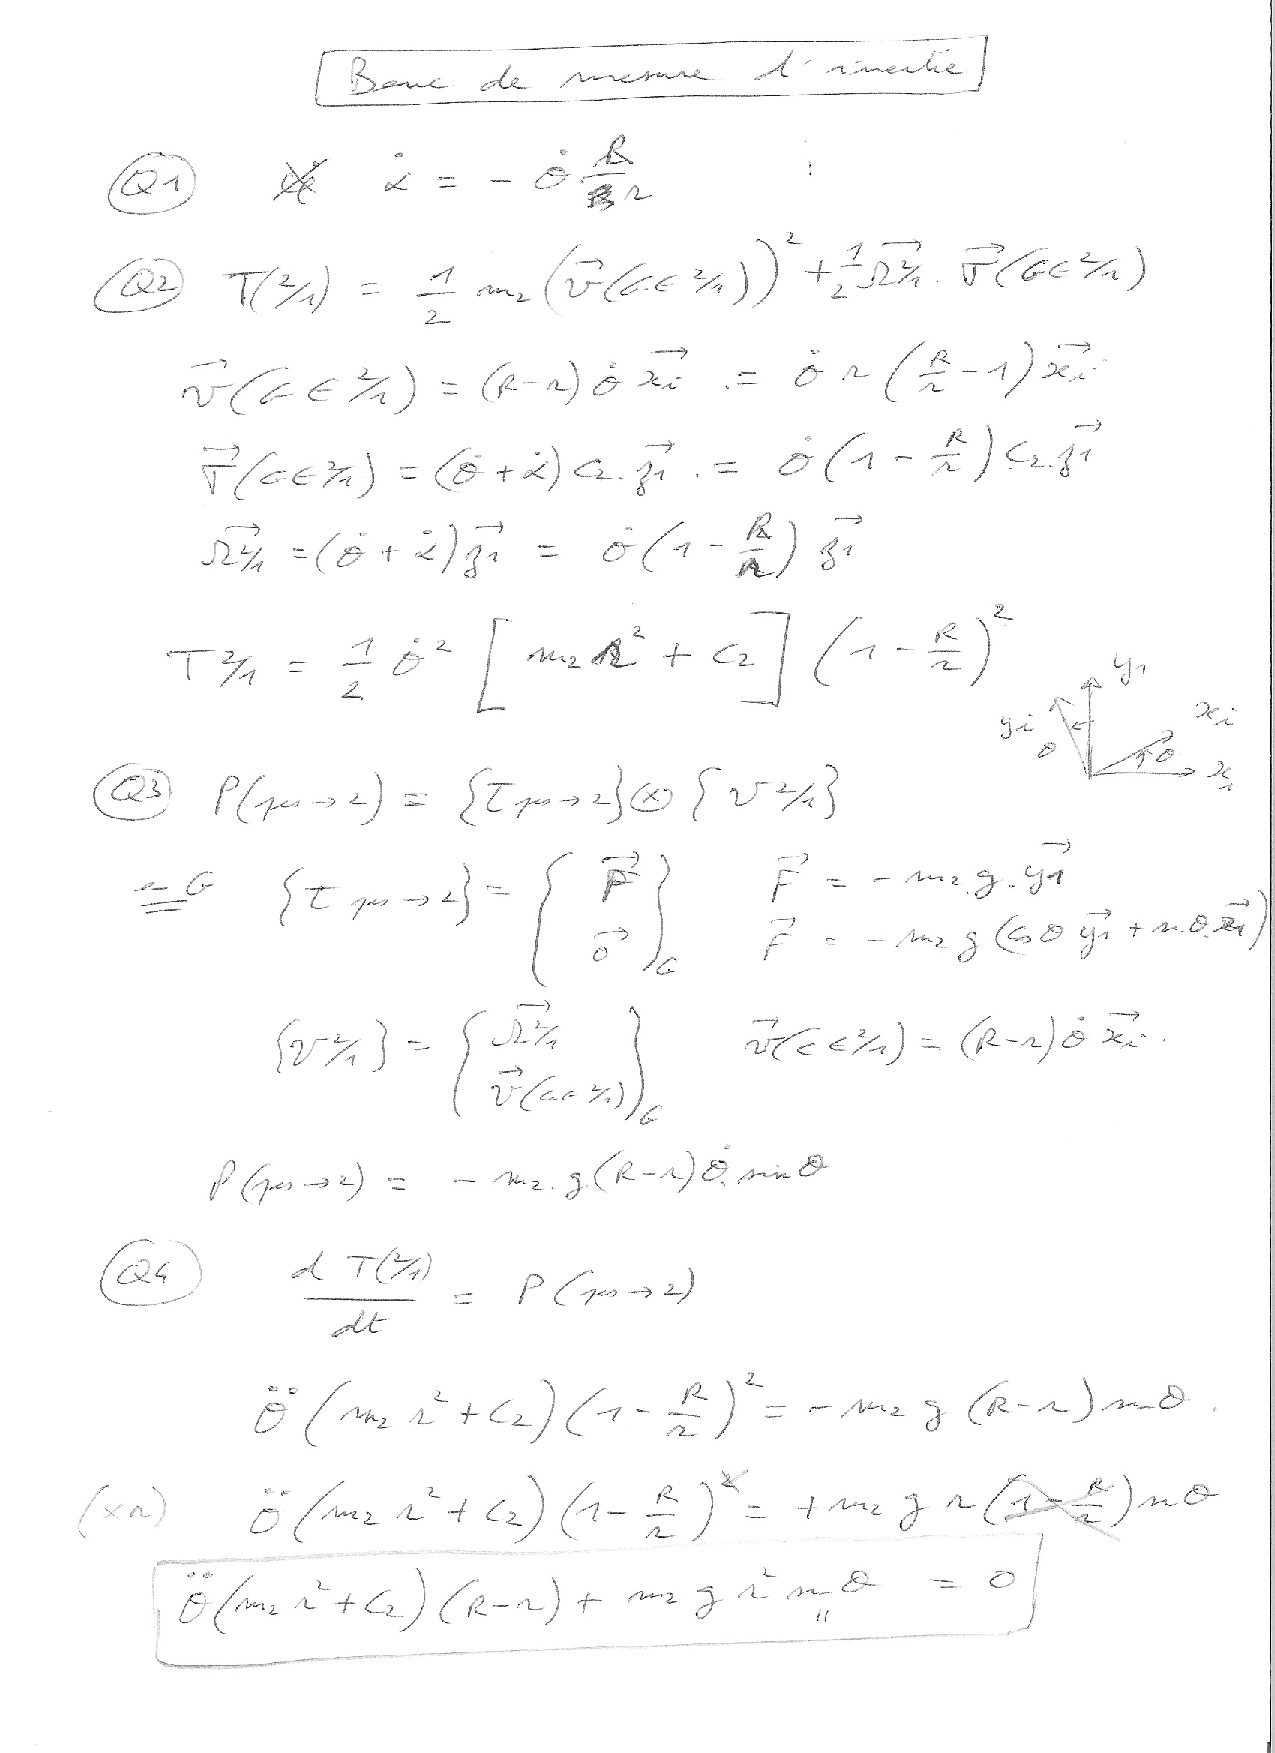 Banc de mesure d'inertie
Q1 α̇ = - θ̇ R/r
Q2 T(2/1) = 1/2 m₂ (v⃗(G∈2/1))² + 1/2 Ω⃗2/1 . σ⃗(G∈2/1)
v⃗(G∈2/1) = (R-r) θ̇ x⃗i . = θ̇ r (R/r - 1) x⃗i
σ⃗(G∈2/1) = (θ̇ + α̇) C₂ . z⃗1 . = θ̇ (1 - R/r) C₂ . z⃗1
Ω⃗2/1 = (θ̇ + α̇) z⃗1 = θ̇ (1 - R/r) z⃗1
T2/1 = 1/2 θ̇² [m₂ r² + C₂] (1 - R/r)²
y1
yi xi
θ θ x1
Q3 P(pes→2) = {τ pes→2} ⊗ {v2/1}
en G {τ pes→2} = {F⃗ 0⃗}G F⃗ = - m₂ . g . y⃗1
F⃗ = - m₂ g (cos θ y⃗i + sin θ . x⃗i)
{v2/1} = {Ω⃗2/1 v⃗(G∈2/1)}G v⃗(G∈2/1) = (R-r) θ̇ x⃗i .
P(pes→2) = - m₂ . g . (R-r) θ̇ . sin θ
Q4 d T(2/1) / dt = P(pes→2)
θ̈ (m₂ r² + C₂) (1 - R/r)² = - m₂ g (R-r) sin θ .
(×r) θ̈ (m₂ r² + C₂) (1 - R/r)² = + m₂ g r (1 - R/r) sin θ
θ̈ (m₂ r² + C₂) (R-r) + m₂ g r² sin θ = 0